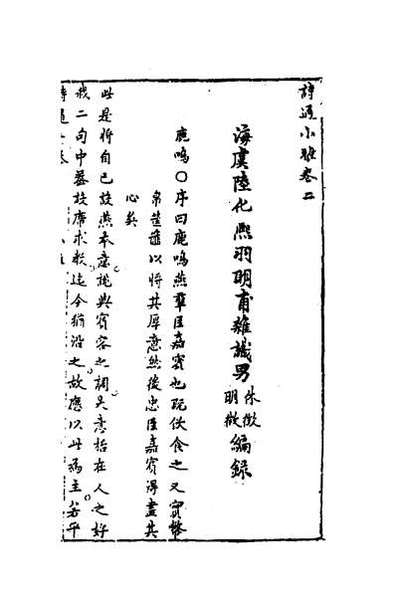 詩通小雅卷二
海虞陸化熙羽明甫雜識男
休徵
明徵
編錄
鹿鳴○序曰鹿鳴燕羣臣嘉賓也既飲食之又實幣
帛筐篚以將其厚意然後忠臣嘉賓得盡其
心矣
此是將自己設燕本意說與賓客之詞大意旨在人之好
我二句中葢設席求教迄今猶沿之故應以此為主若平